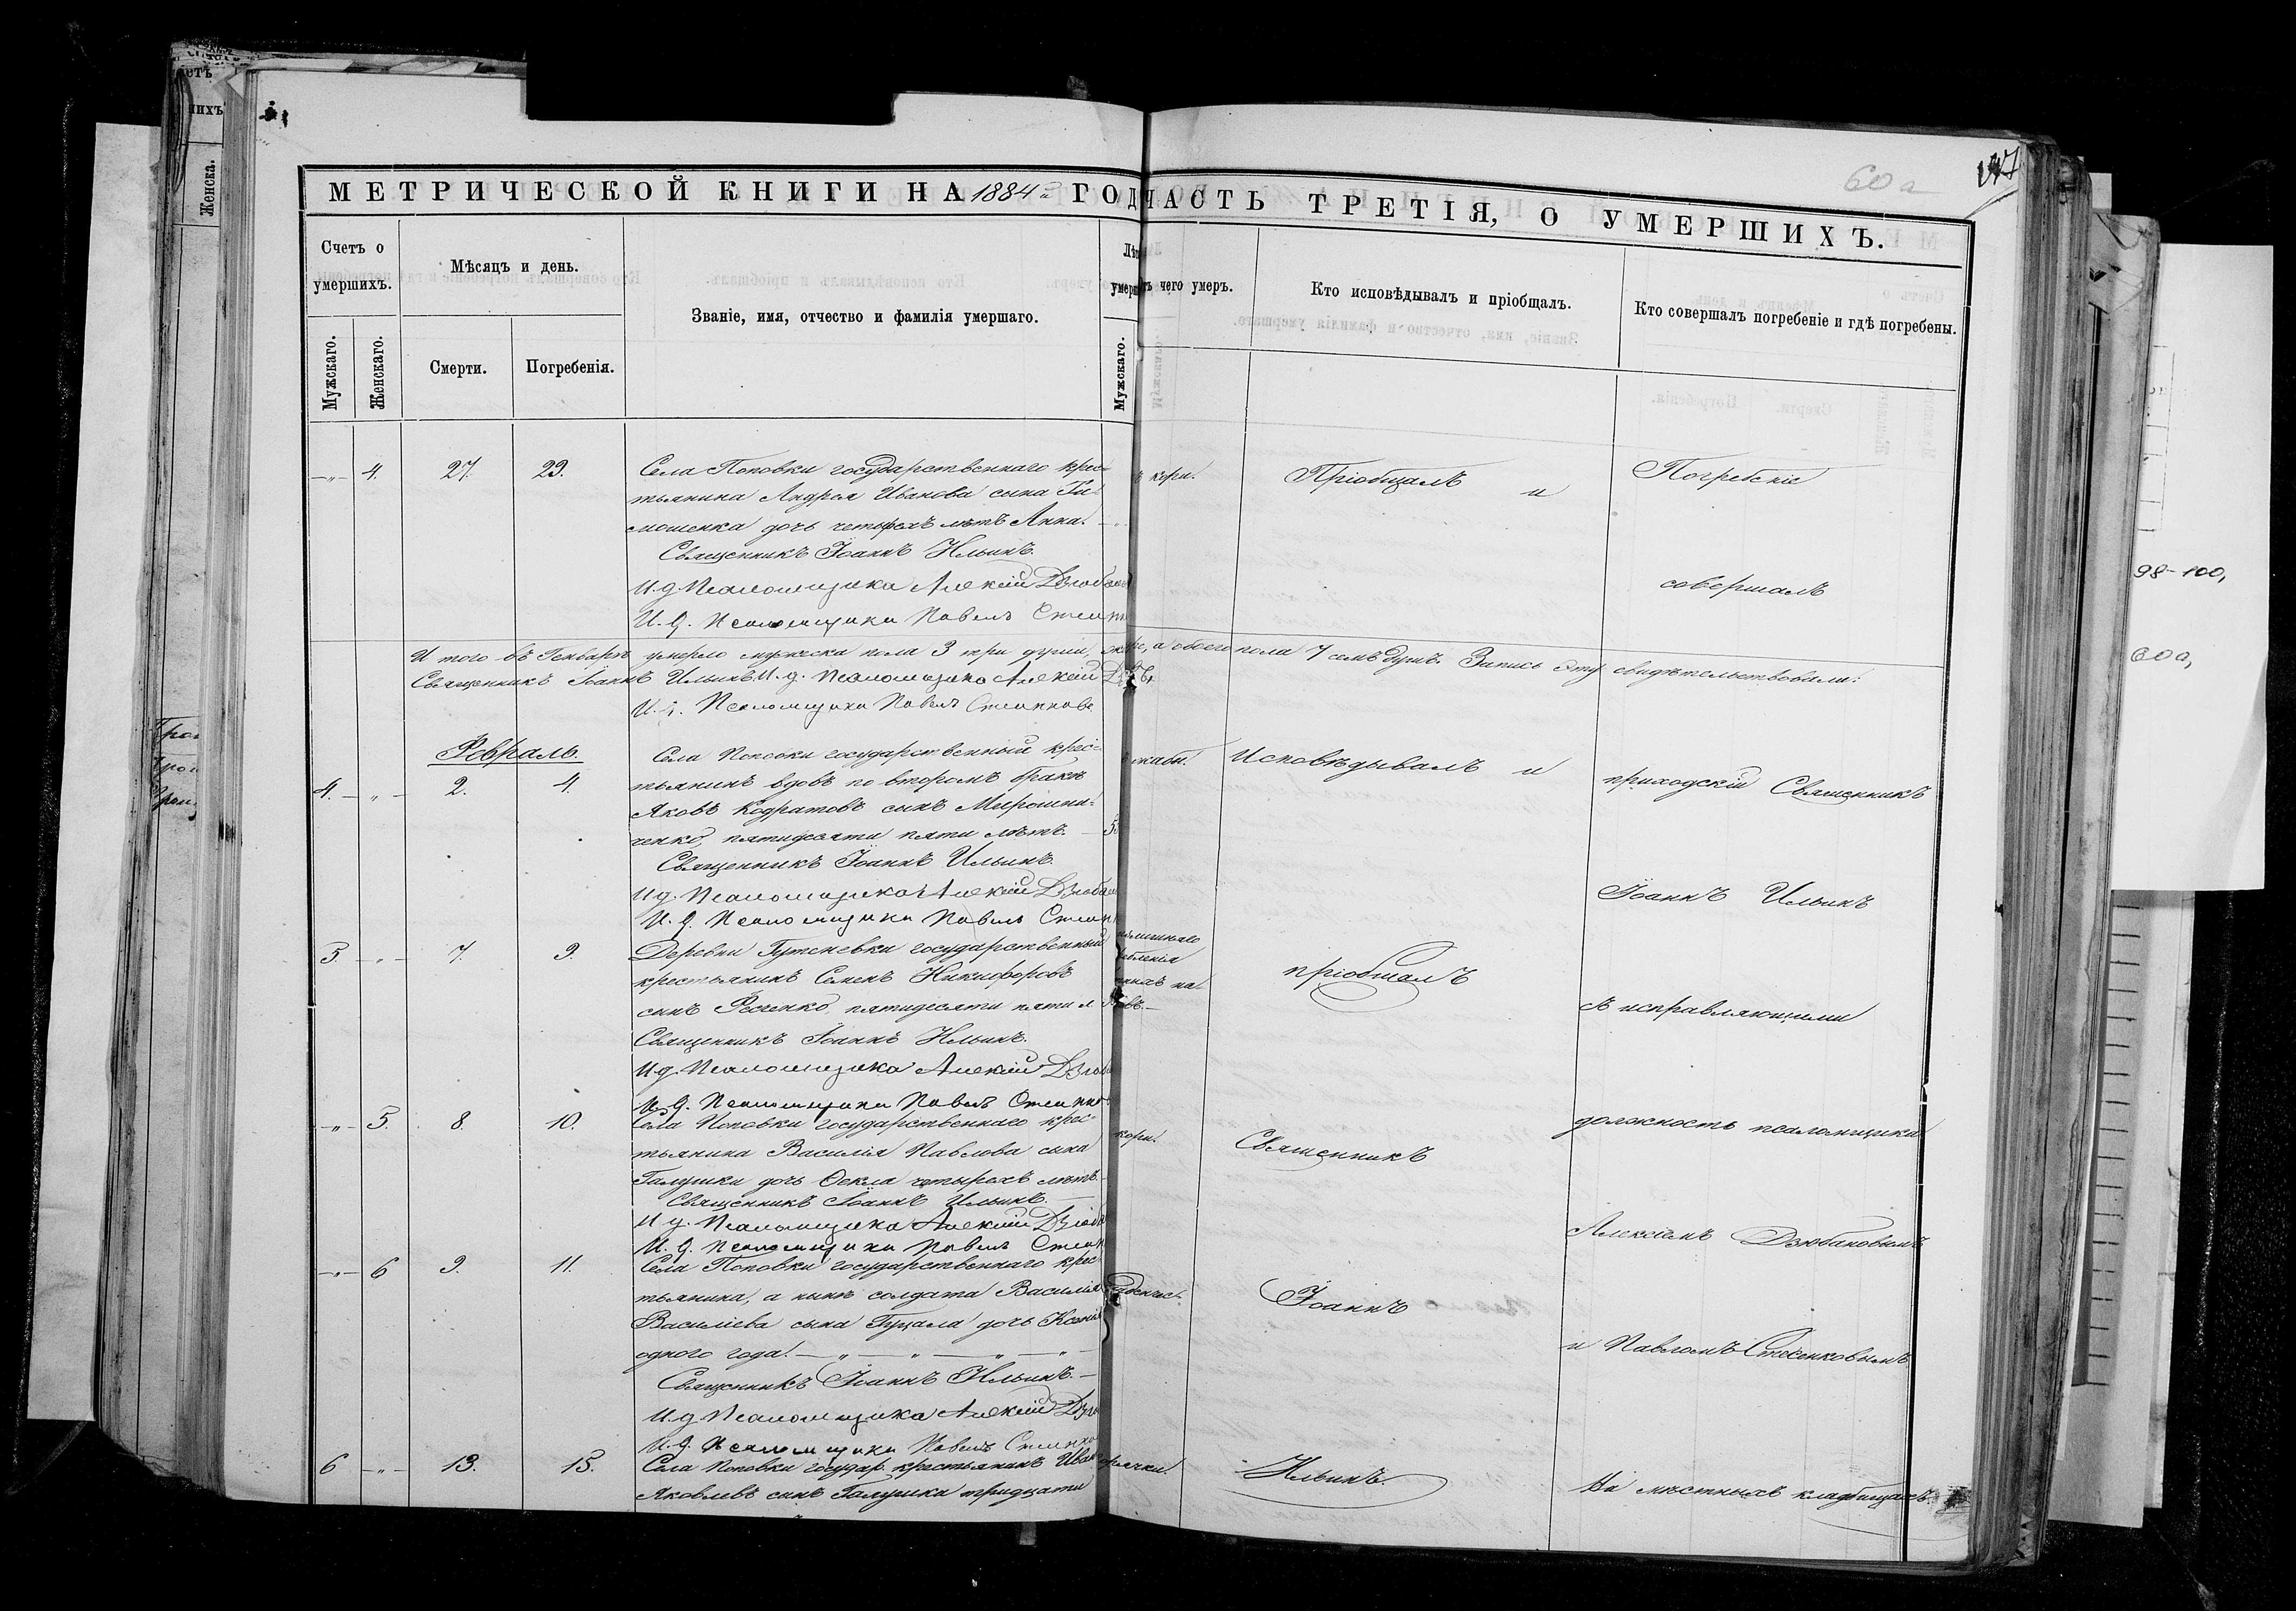 60 а
МЕТРИЧЕСКОЙ КНИГИ НА 1884й ГОД
ЧАСТЬ ТРЕТІЯ, О УМЕРШИХЪ.
Счетъ о умершихъ.
Мужскаго.
Женскаго.
Мѣсяцъ и день.
Смерти.
Погребенія.
Званіе, имя, отчество и фамилія умершаго.
Мужскаго.
чего умеръ.
Кто исповѣдывалъ и пріобщалъ.
Кто совершалъ погребеніе и гдѣ погребены.
Женска.
-"- 4. 27. 29. Села Поповки государственнаго крес=
тьянина Андрея Иванова сына Ти=
мошенка дочь четырехъ лѣтъ Анна.
Священникъ Іоаннъ Ильинъ.
И. д. Псаломщика Алексій
И. д. Псаломщика Павелъ
кори.
Пріобщалъ и
Погребеніе
совершалъ
И того въ Генварѣ умерло мужеска пола 3 три души, а обоего пола 7 семъ душъ. Запись эту свидѣтельствовали:
Священникъ Іоаннъ Ильинъ. И. д. Псаломщика Алексій
И. д. Псаломщика Павелъ
Февраль.
4. -"- 2. 4. Села Поповки государственный крес=
тьянинъ вдовъ по второмъ бракѣ
Яковъ Кодратовъ сынъ Мирошни=
ченко, пятидесяти пяти лѣтъ.
Священникъ Іоаннъ Ильинъ.
И. д. Псаломщика Алексій
И. д. Псаломщика Павелъ
жабы.
Исповѣдывалъ и
приходскій Священникъ
Іоаннъ Ильинъ
5. -"- 7. 9. Деревни государственный
крестьянинъ Семенъ Никифоровъ
сынъ Фесенко, пятидесяти пяти л
Священникъ Іоаннъ Ильинъ.
И. д. Псаломщика Алексій
И. д. Псаломщика Павелъ
пріобщалъ
съ исправляющими
-"- 5. 8. 10. Села Поповки государственнаго крес=
тьянина Василія Павлова сына
Галушки дочь Ѳекла четырехъ лѣтъ.
Священникъ Іоаннъ Ильинъ.
И. д. Псаломщика Алексій
И. д. Псаломщика Павелъ
кори.
Священникъ
должность псаломщика
Алексіемъ Дзюбановымъ
-"- 6 9. 11. Села Поповки государственнаго крес
тьянина, а нынѣ солдата Василія
Василіева сына дочь
одного года.
Священникъ Іоаннъ Ильинъ.
И. д. Псаломщика Алексій
И. д. Псаломщика Павелъ
Іоаннъ
и Павломъ
6 -"- 13. 15. Села Поповки государ. крестьянинъ Иван
Яковлевъ сынъ Галушка тридцати
Ильинъ.
На мѣстныхъ кладбищахъ.
98-100,
60а,